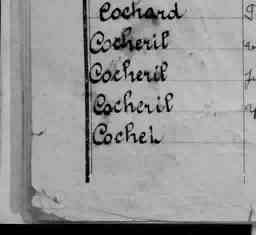 Cochard
Cocheril
Cocheril
Cocheril
Cochet